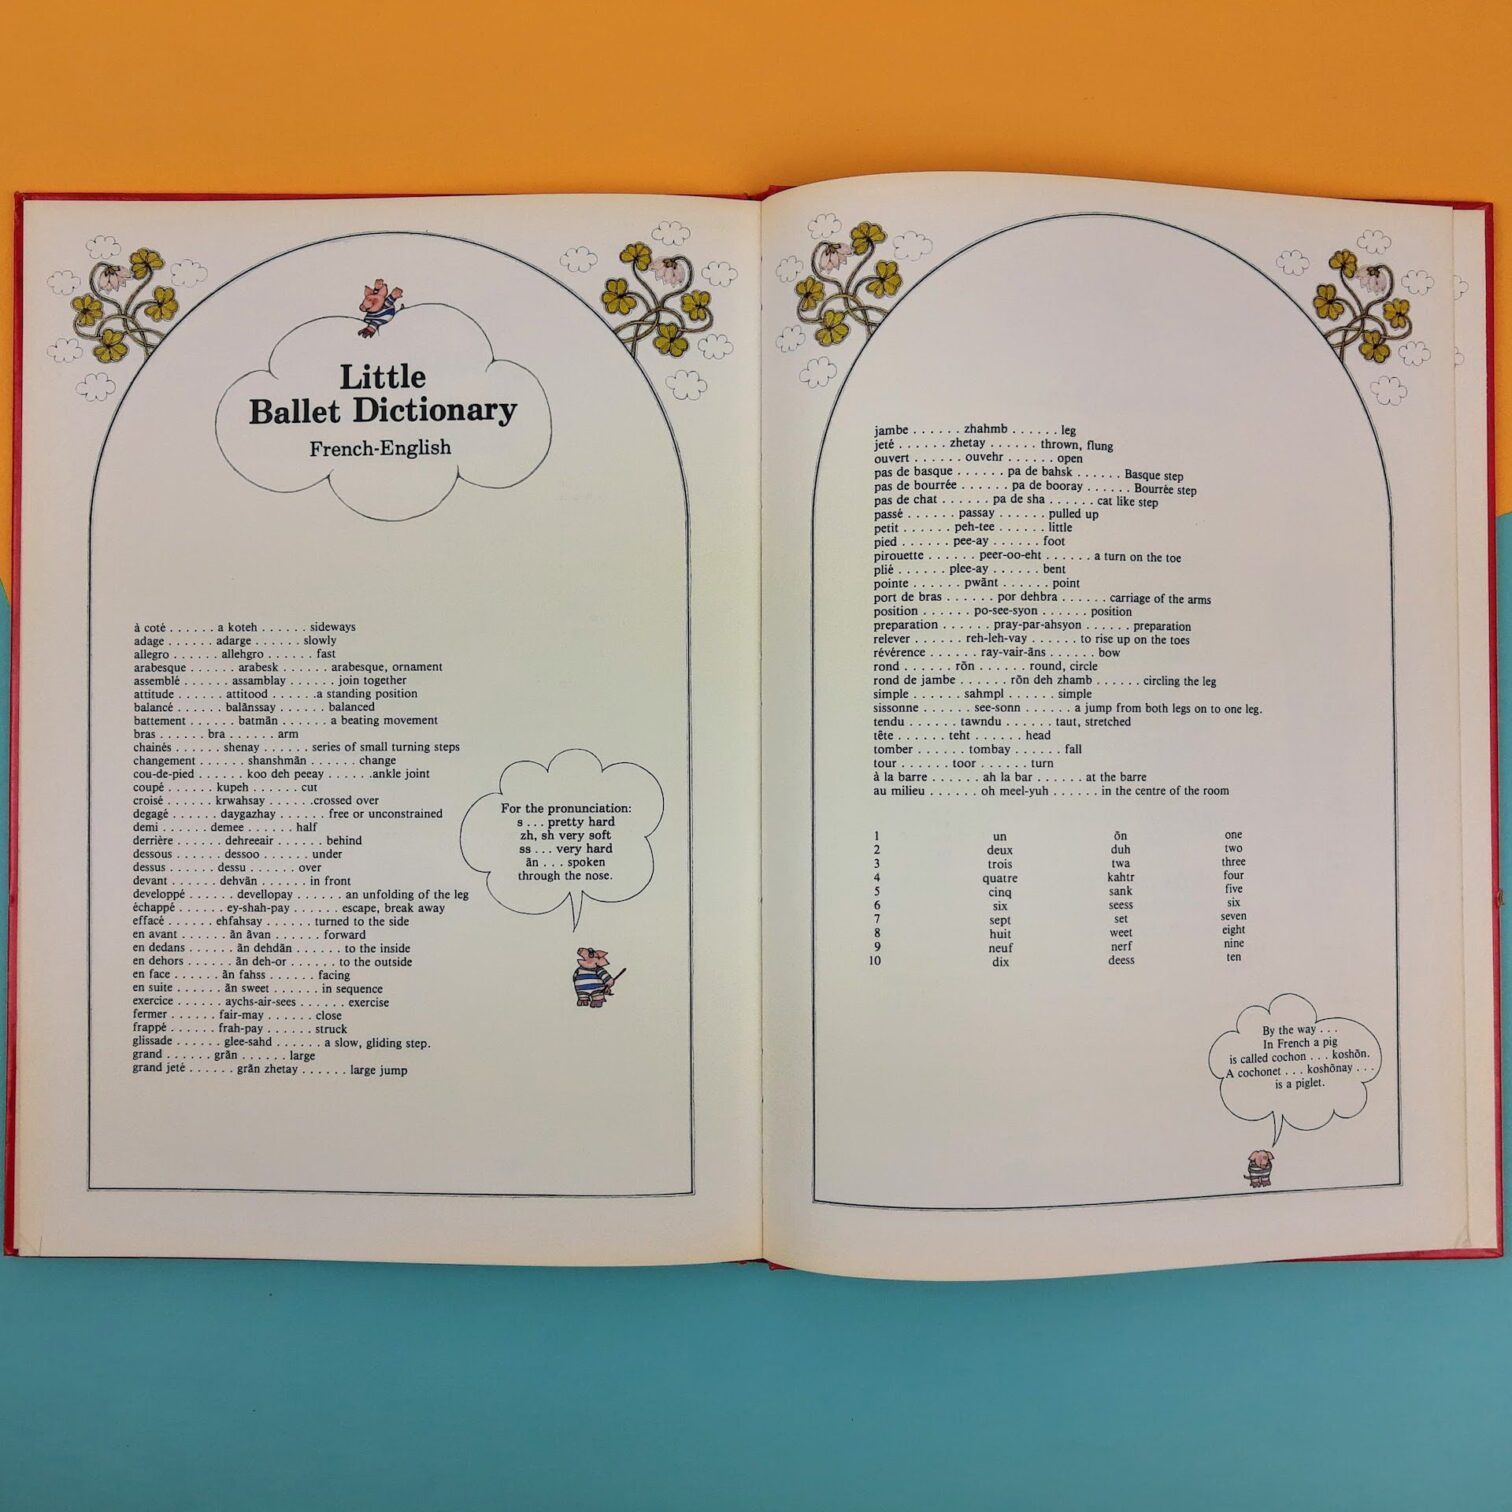 Little
Ballet Dictionary
French-English
à coté . . . . . . a koteh . . . . . . sideways
adage . . . . . . adarge . . . . . . slowly
allegro . . . . . . allehgro . . . . . . fast
arabesque . . . . . . arabesk . . . . . . arabesque, ornament
assemblé . . . . . . assamblay . . . . . . join together
attitude . . . . . . attitood . . . . . .a standing position
balancé . . . . . . balãnssay . . . . . . balanced
battement . . . . . . batmãn . . . . . . a beating movement
bras . . . . . . bra . . . . . . arm
chainés . . . . . . shenay . . . . . . series of small turning steps
changement . . . . . . shanshmãn . . . . . . change
cou-de-pied . . . . . . koo deh peeay . . . . . .ankle joint
coupé . . . . . . kupeh . . . . . . cut
croisé . . . . . . krwahsay . . . . . .crossed over
degagé . . . . . . daygazhay . . . . . . free or unconstrained
demi . . . . . . demee . . . . . . half
derrière . . . . . . dehreeair . . . . . . behind
dessous . . . . . . dessoo . . . . . . under
dessus . . . . . . dessu . . . . . . over
devant . . . . . . dehvãn . . . . . . in front
developpé . . . . . . devellopay . . . . . . an unfolding of the leg
échappé . . . . . . ey-shah-pay . . . . . . escape, break away
effacé . . . . . . ehfahsay . . . . . . turned to the side
en avant . . . . . . ãn ãvan . . . . . . forward
en dedans . . . . . . ãn dehdãn . . . . . . to the inside
en dehors . . . . . . ãn deh-or . . . . . . to the outside
en face . . . . . . ãn fahss . . . . . . facing
en suite . . . . . . ãn sweet . . . . . . in sequence
exercice . . . . . . aychs-air-sees . . . . . . exercise
fermer . . . . . . fair-may . . . . . . close
frappé . . . . . . frah-pay . . . . . . struck
glissade . . . . . . glee-sahd . . . . . . a slow, gliding step.
grand . . . . . . grãn . . . . . . large
grand jeté . . . . . . grãn zhetay . . . . . . large jump
For the pronunciation:
s . . . pretty hard
zh, sh very soft
ss . . . very hard
ãn . . . spoken
through the nose.
jambe . . . . . . zhahmb . . . . . . leg
jeté . . . . . . zhetay . . . . . . thrown, flung
ouvert . . . . . . ouvehr . . . . . . open
pas de basque . . . . . . pa de bahsk . . . . . . Basque step
pas de bourrée . . . . . . pa de booray . . . . . . Bourrée step
pas de chat . . . . . . pa de sha . . . . . . cat like step
passé . . . . . . passay . . . . . . pulled up
petit . . . . . . peh-tee . . . . . . little
pied . . . . . . pee-ay . . . . . . foot
pirouette . . . . . . peer-oo-eht . . . . . . a turn on the toe
plié . . . . . . plee-ay . . . . . . bent
pointe . . . . . . pwãnt . . . . . . point
port de bras . . . . . . por dehbra . . . . . . carriage of the arms
position . . . . . . po-see-syon . . . . . . position
preparation . . . . . . pray-par-ahsyon . . . . . . preparation
relever . . . . . . reh-leh-vay . . . . . . to rise up on the toes
révérence . . . . . . ray-vair-ãns . . . . . . bow
rond . . . . . . rõn . . . . . . round, circle
rond de jambe . . . . . . rõn deh zhamb . . . . . . circling the leg
simple . . . . . . sahmpl . . . . . . simple
sissonne . . . . . . see-sonn . . . . . . a jump from both legs on to one leg.
tendu . . . . . . tawndu . . . . . . taut, stretched
tête . . . . . . teht . . . . . . head
tomber . . . . . . tombay . . . . . . fall
tour . . . . . . toor . . . . . . turn
à la barre . . . . . . ah la bar . . . . . . at the barre
au milieu . . . . . . oh meel-yuh . . . . . . in the centre of the room
1 un õn one
2 deux duh two
3 trois twa three
4 quatre kahtr four
5 cinq sank five
6 six seess six
7 sept set seven
8 huit weet eight
9 neuf nerf nine
10 dix deess ten
By the way . . .
In French a pig
is called cochon . . . koshõn.
A cochonet . . . koshõnay . . .
is a piglet.